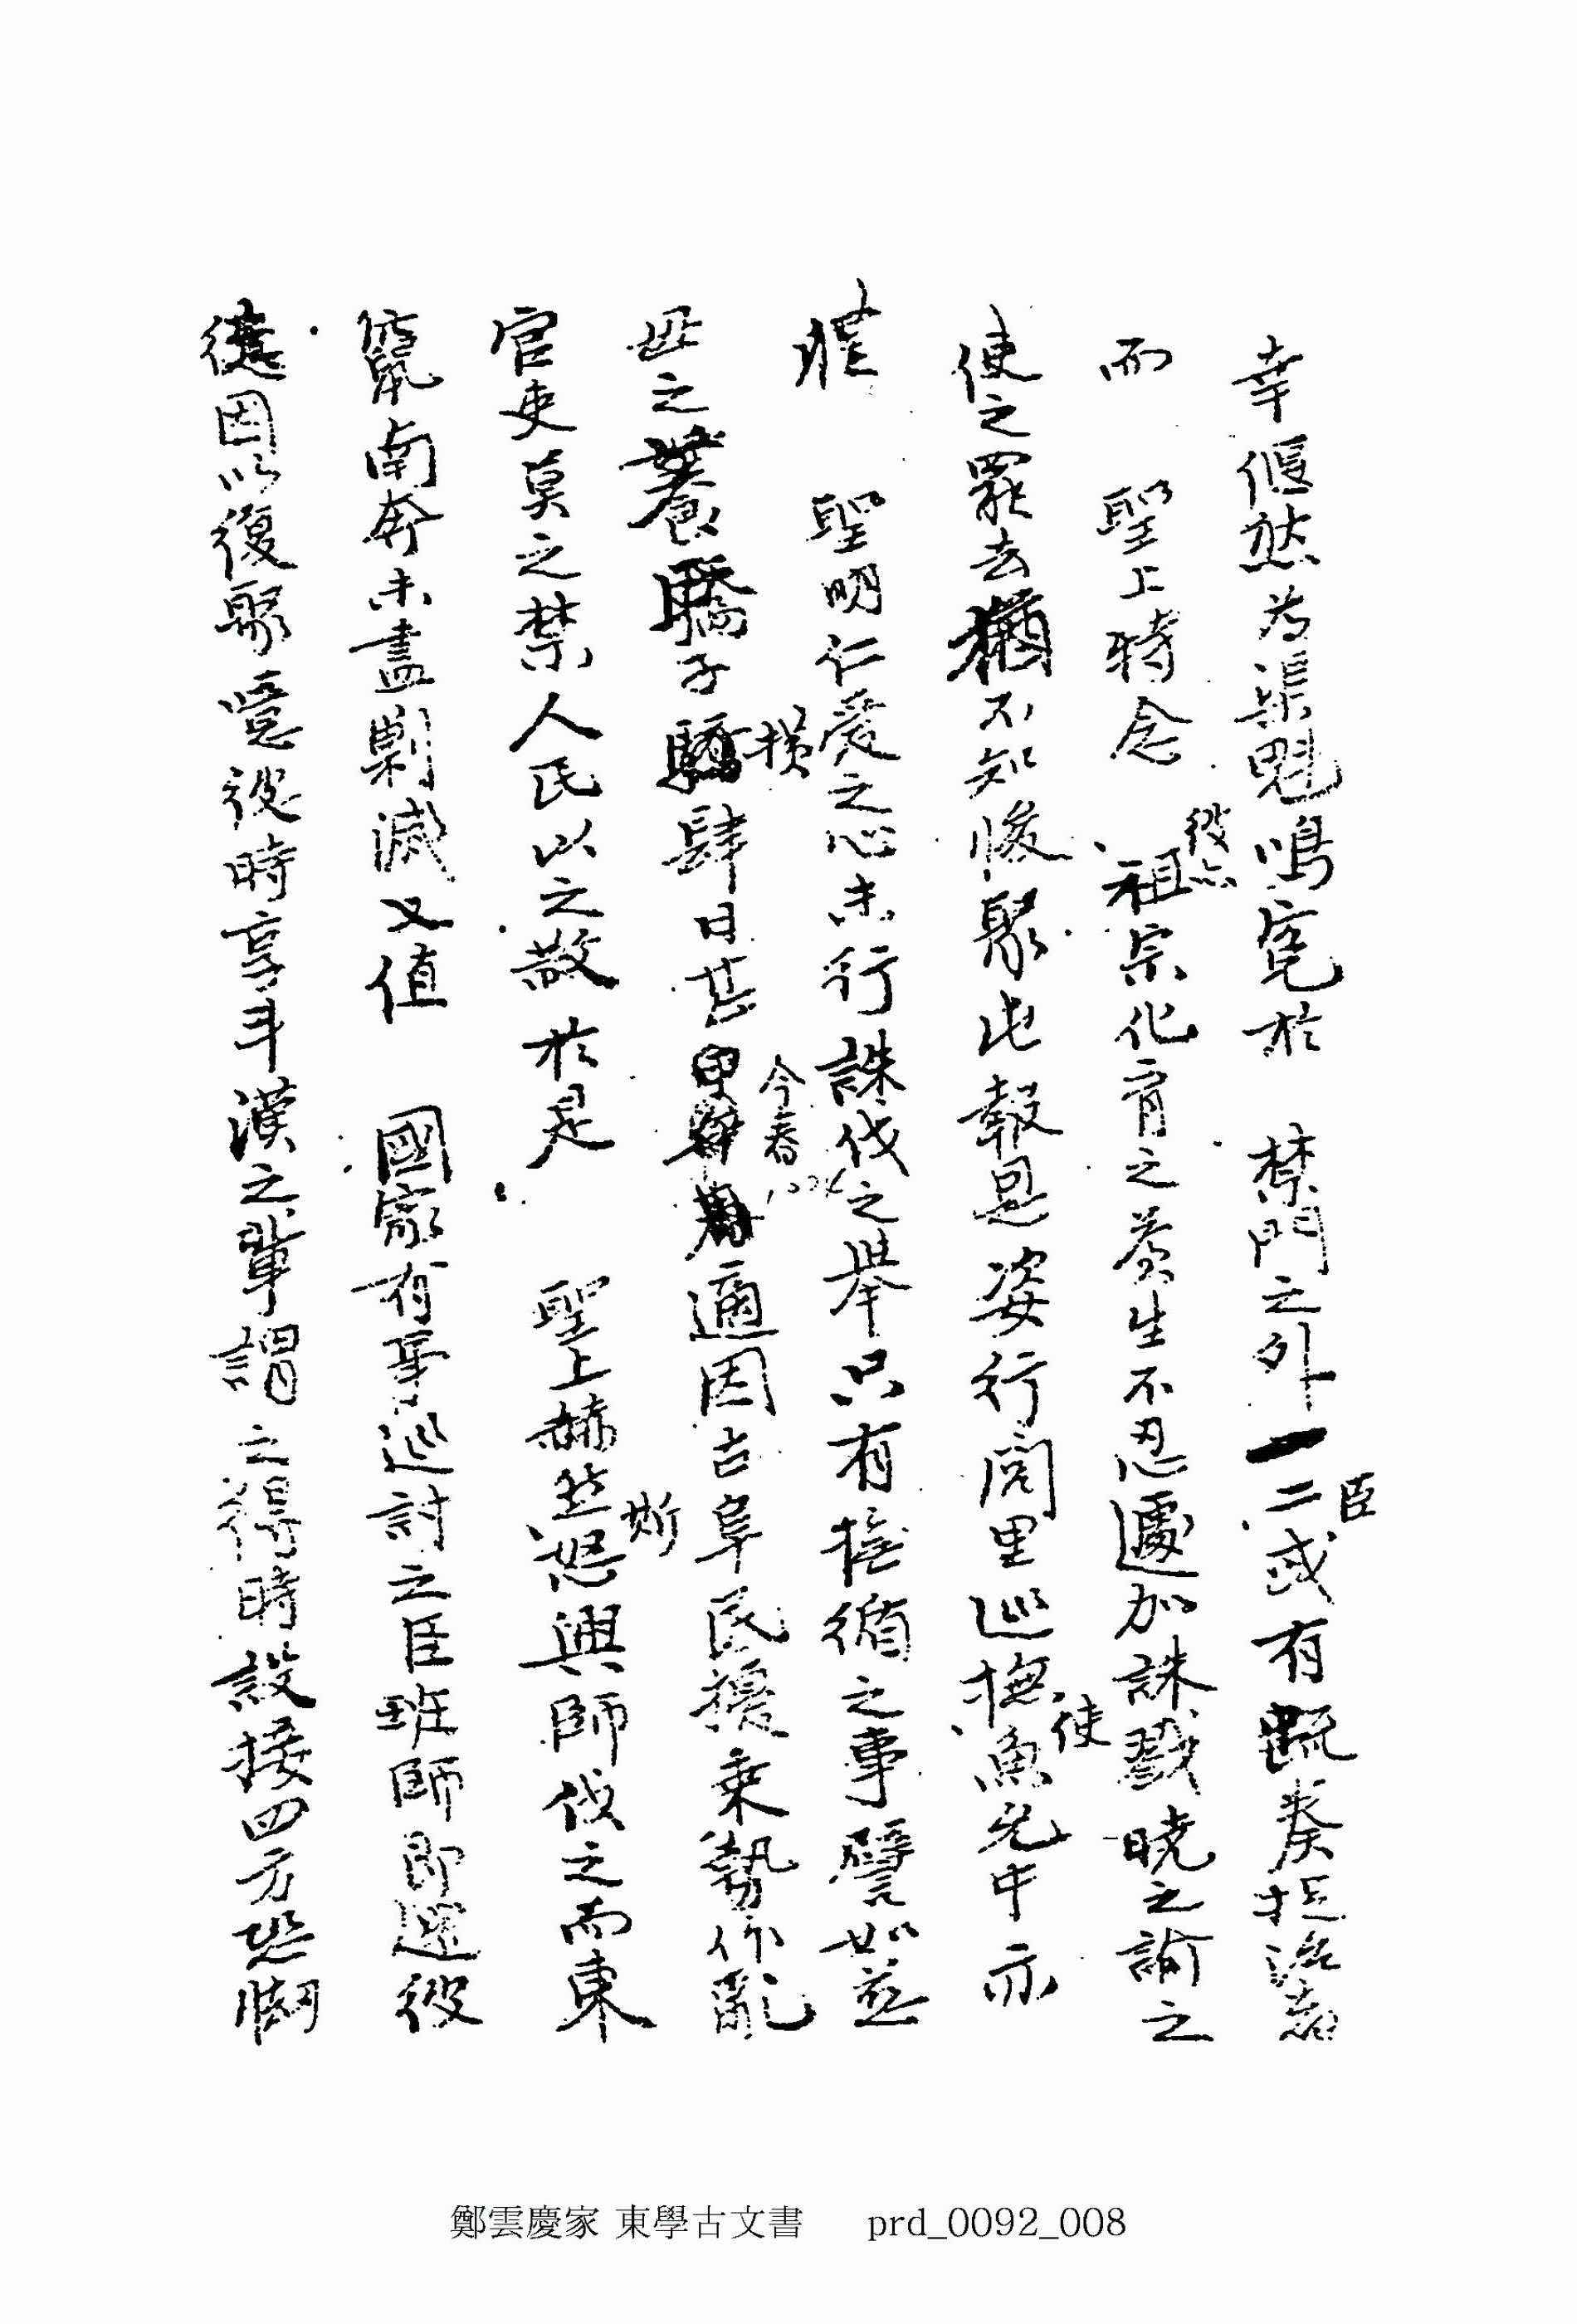 幸偃然為渠魁鳴冤於 禁門之外一二臣或有疏奏抵諮者
而 聖上特念 彼亦祖宗化育之蒼生不忍遽加誅戮曉之諭之
使之罷去猶不知悛聚屯報恩恣行閭里巡撫使魚允中亦
 聖明仁愛之心未行誅伐之舉只有撫循之事譬如慈
母之養驕子驕橫肆日甚今春適因古阜民擾乘勢作亂
官吏莫之禁人民以之敬於是 聖上赫然斯怒興師伐之而東
竄南奔未盡剿滅又值 國家有事巡討之臣班師即還彼
徒因以復聚噫彼時享斗漢之輩謂之得時設接四方恐㗅
鄭雲慶家 東學古文書 prd_0092_008